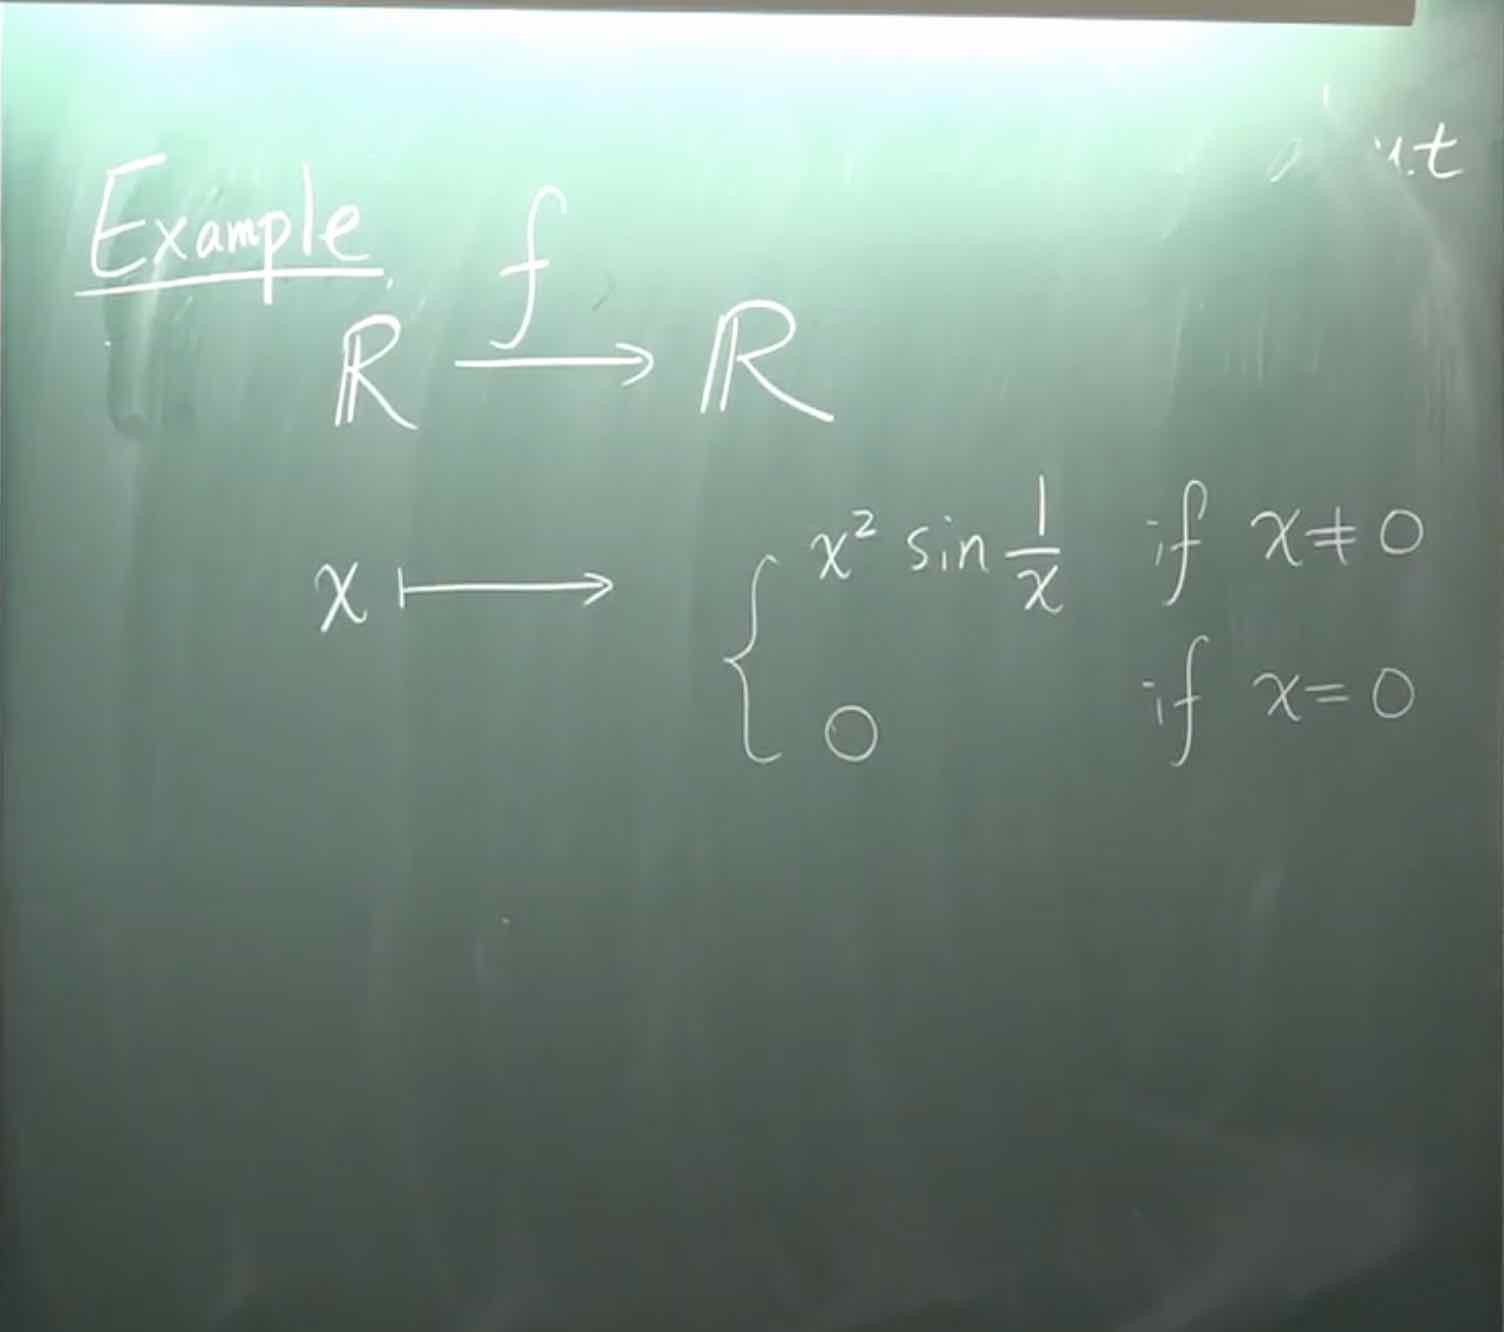 Example
f
ℝ ⟶ ℝ
x ⟼ { x² sin 1/x if x≠0
0 if x=0